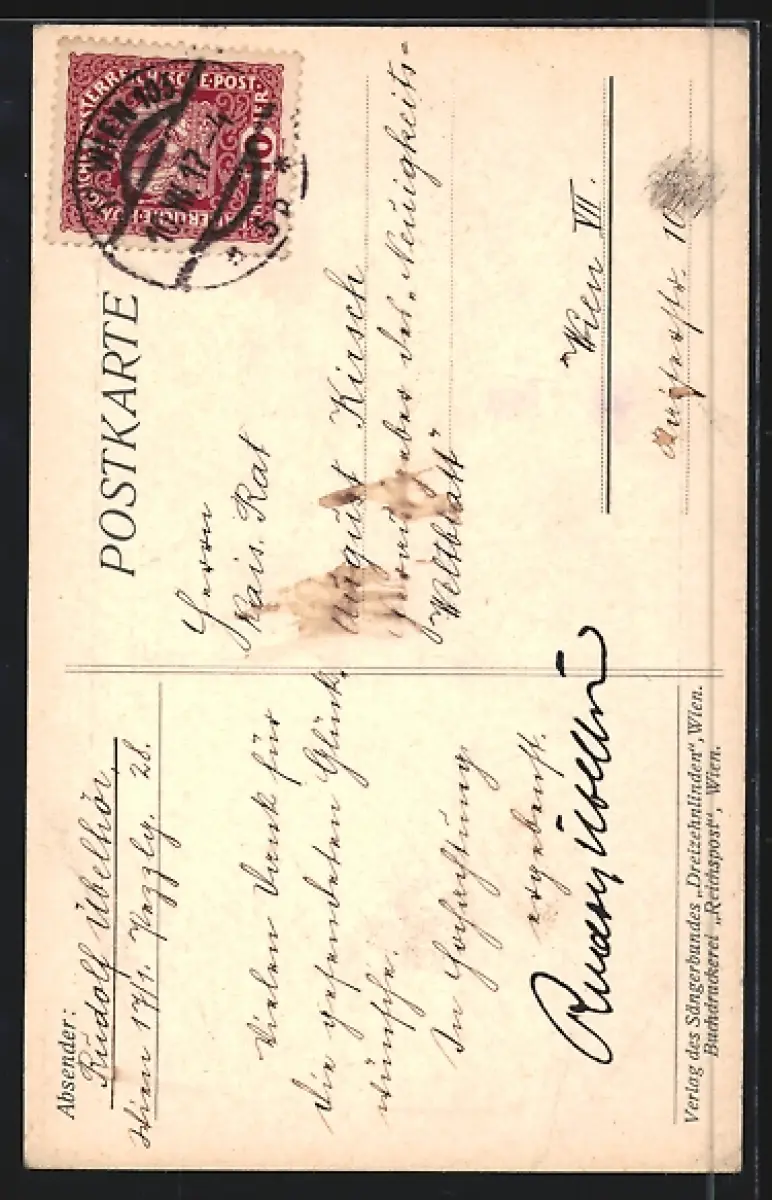 POSTKARTE
KAISERLICHE KÖNIGLICHE ÖSTERREICHISCHE POST
10
WIEN 103
10.VII.17-4
* 5b *
Absender:
Rudolf Übelhör,
Wien 17/1. Pezzlg. 28.
Vielen Dank für
die gesendeten Glück-
wünsche.
In Hochachtung
ergebenst.
Rudolf Übelhör
Herrn
Kais. Rat
August Kirsch
Herausgeber des „Neuigkeits-
Weltblatt"
Wien VII.
10
Verlag des Sängerbundes „Dreizehnlinden", Wien.
Buchdruckerei „Reichspost", Wien.